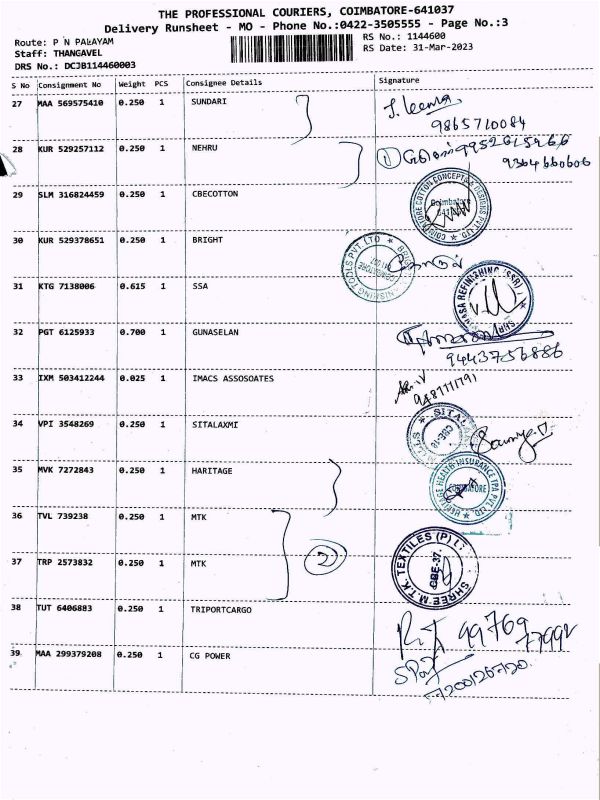 THE PROFESSIONAL COURIERS, COIMBATORE-641037
Delivery Runsheet - MO - Phone No.:0422-3505555 - Page No.:3
Route: P N PALAYAM
RS No.: 1144600
Staff: THANGAVEL
RS Date: 31-Mar-2023
DRS No.: DCJB114460003
S No Consignment No Weight PCS Consignee Details Signature
27 MAA 569575410 0.250 1 SUNDARI
9865710084
28 KUR 529257112 0.250 1 NEHRU
29 SLM 316824459 0.250 1 CBECOTTON
30 KUR 529378651 0.250 1 BRIGHT
31 KTG 7138006 0.615 1 SSA
32 PGT 6125933 0.700 1 GUNASELAN
9443756886
33 IXM 503412244 0.025 1 IMACS ASSOSOATES
34 VPI 3548269 0.250 1 SITALAXMI
35 MVK 7272843 0.250 1 HARITAGE
HERITAGE HEALTH INSURANCE TPA PVT LTD
COIMBATORE
36 TVL 739238 0.250 1 MTK
37 TRP 2573832 0.250 1 MTK
2
SHREE M.T.K. TEXTILES (P) LT
CBE-37.
38 TUT 6406883 0.250 1 TRIPORTCARGO
39 MAA 299379208 0.250 1 CG POWER